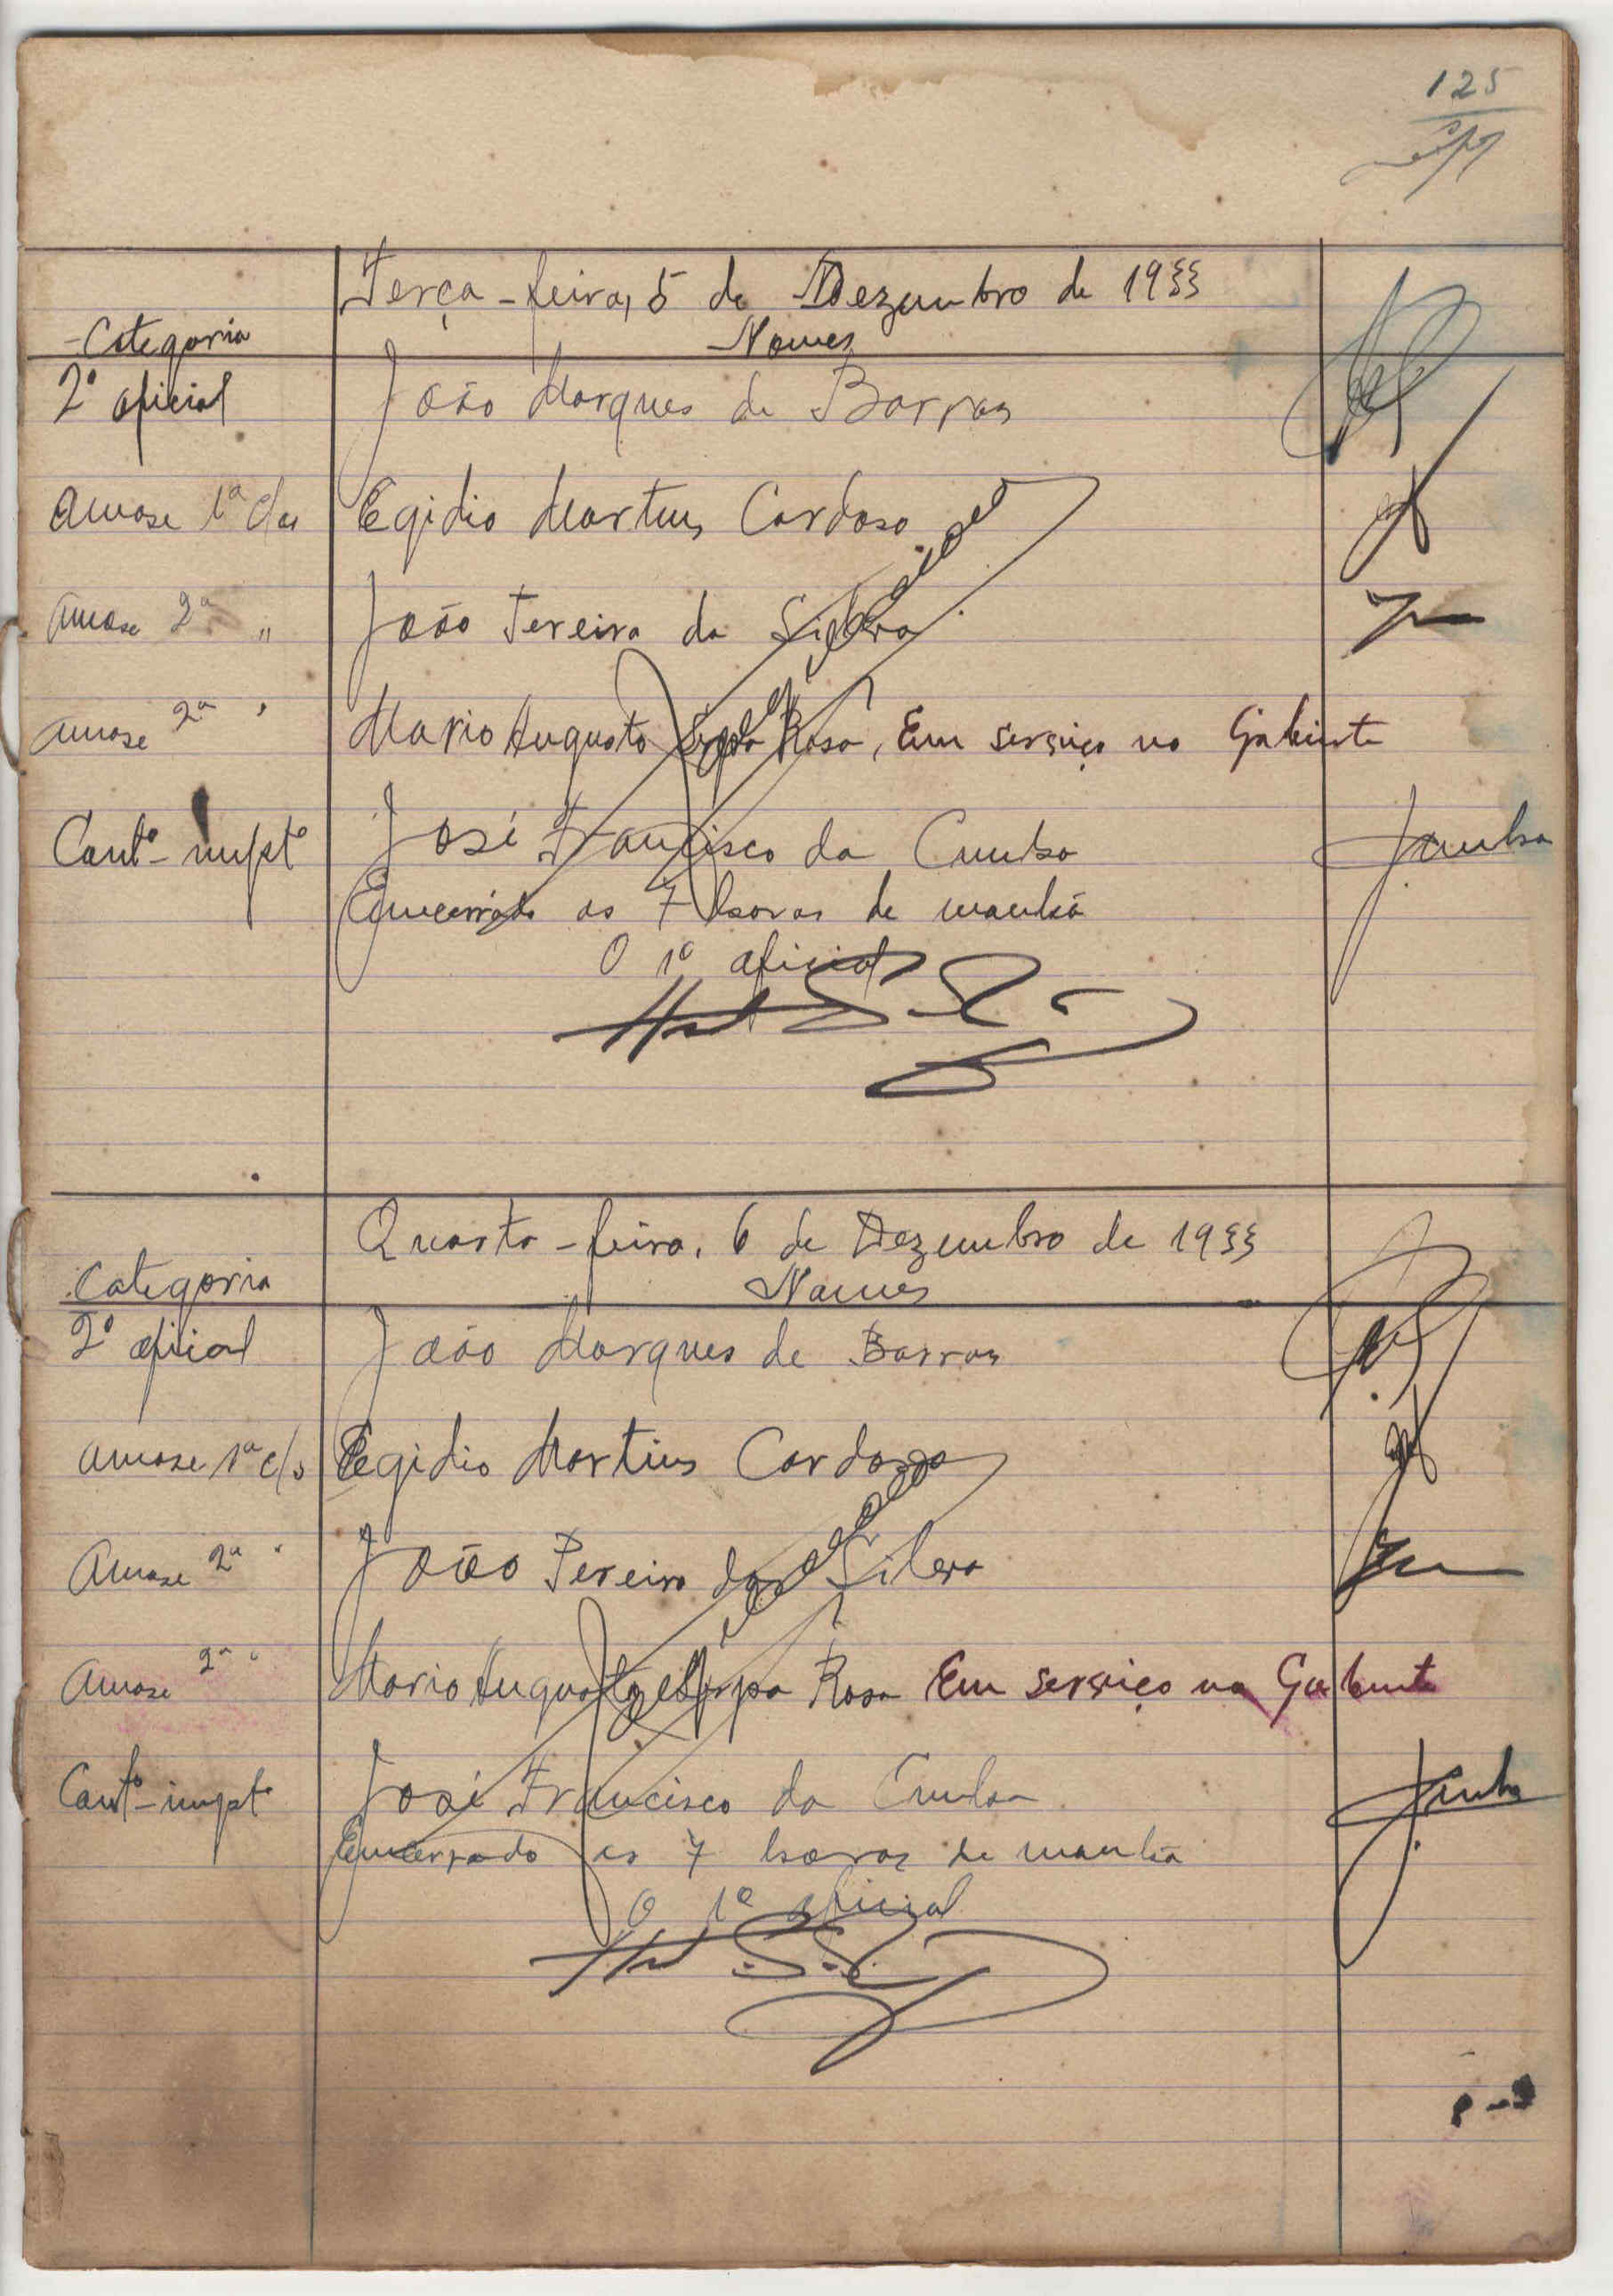 125
Terça-feira, 5 de Dezembro de 1933
Categoria Nomes
2º oficial João Marques de Barros
Amase 1ª c/as Egidio Martins Cardoso
Amase 2ª " João Pereira da Silva
Amase 2ª " Mario Augusto Serpa Rosa, Em serviço no Gabinete
Contº-impt° José Francisco da Cunha Jcunha
Emcerrado as 7 horas de manhã
O 1º oficial
Quarta-feira, 6 de Dezembro de 1933
Categoria Nomes
2º oficial João Marques de Barros
Amase 1ª c/s Egidio Martins Cardoso
Amase 2ª " João Pereira da Silva
Amase 2ª " Mario Augusto Serpa Rosa Em serviço no Gabinete
Contº-impt° José Francisco da Cunha Jcunha
Emcerrado as 7 horas de manhã
O 1º oficial